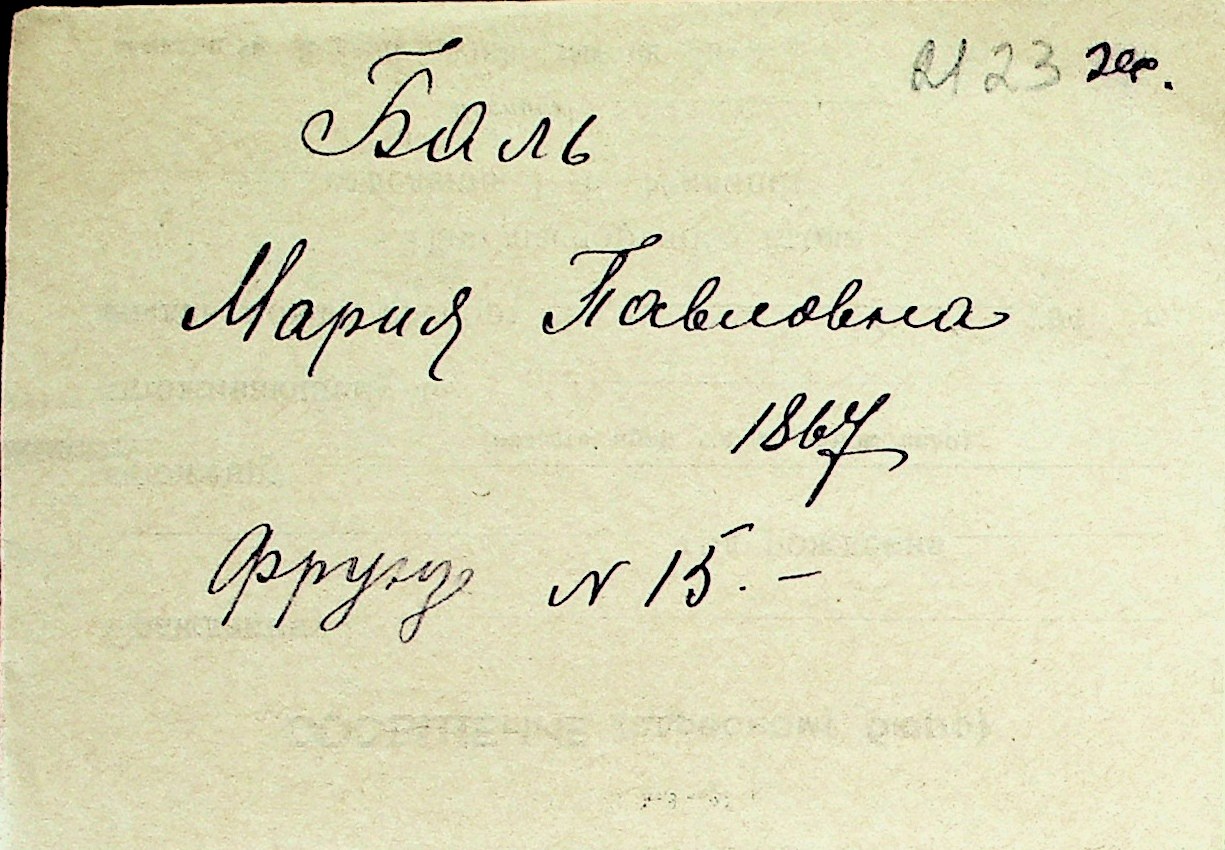 2123
Баль
Мария Павловна
1867
Фрунзе N 15. –